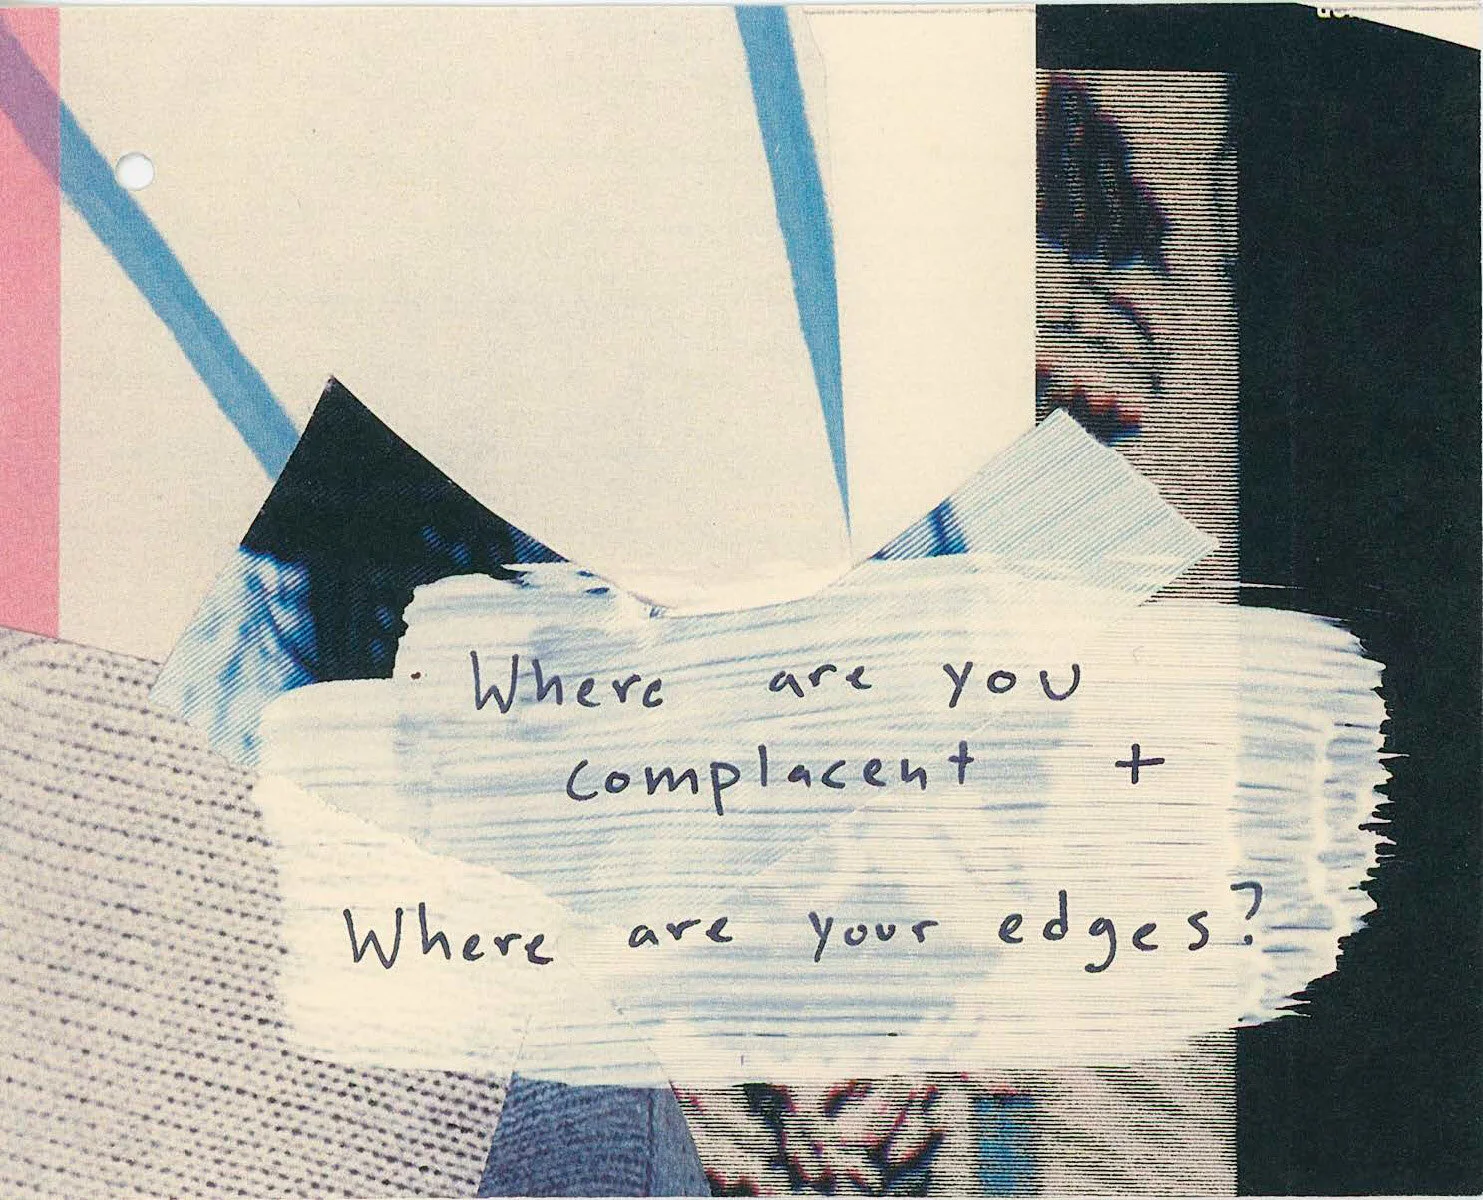 Where are you
complacent +
Where are your edges?